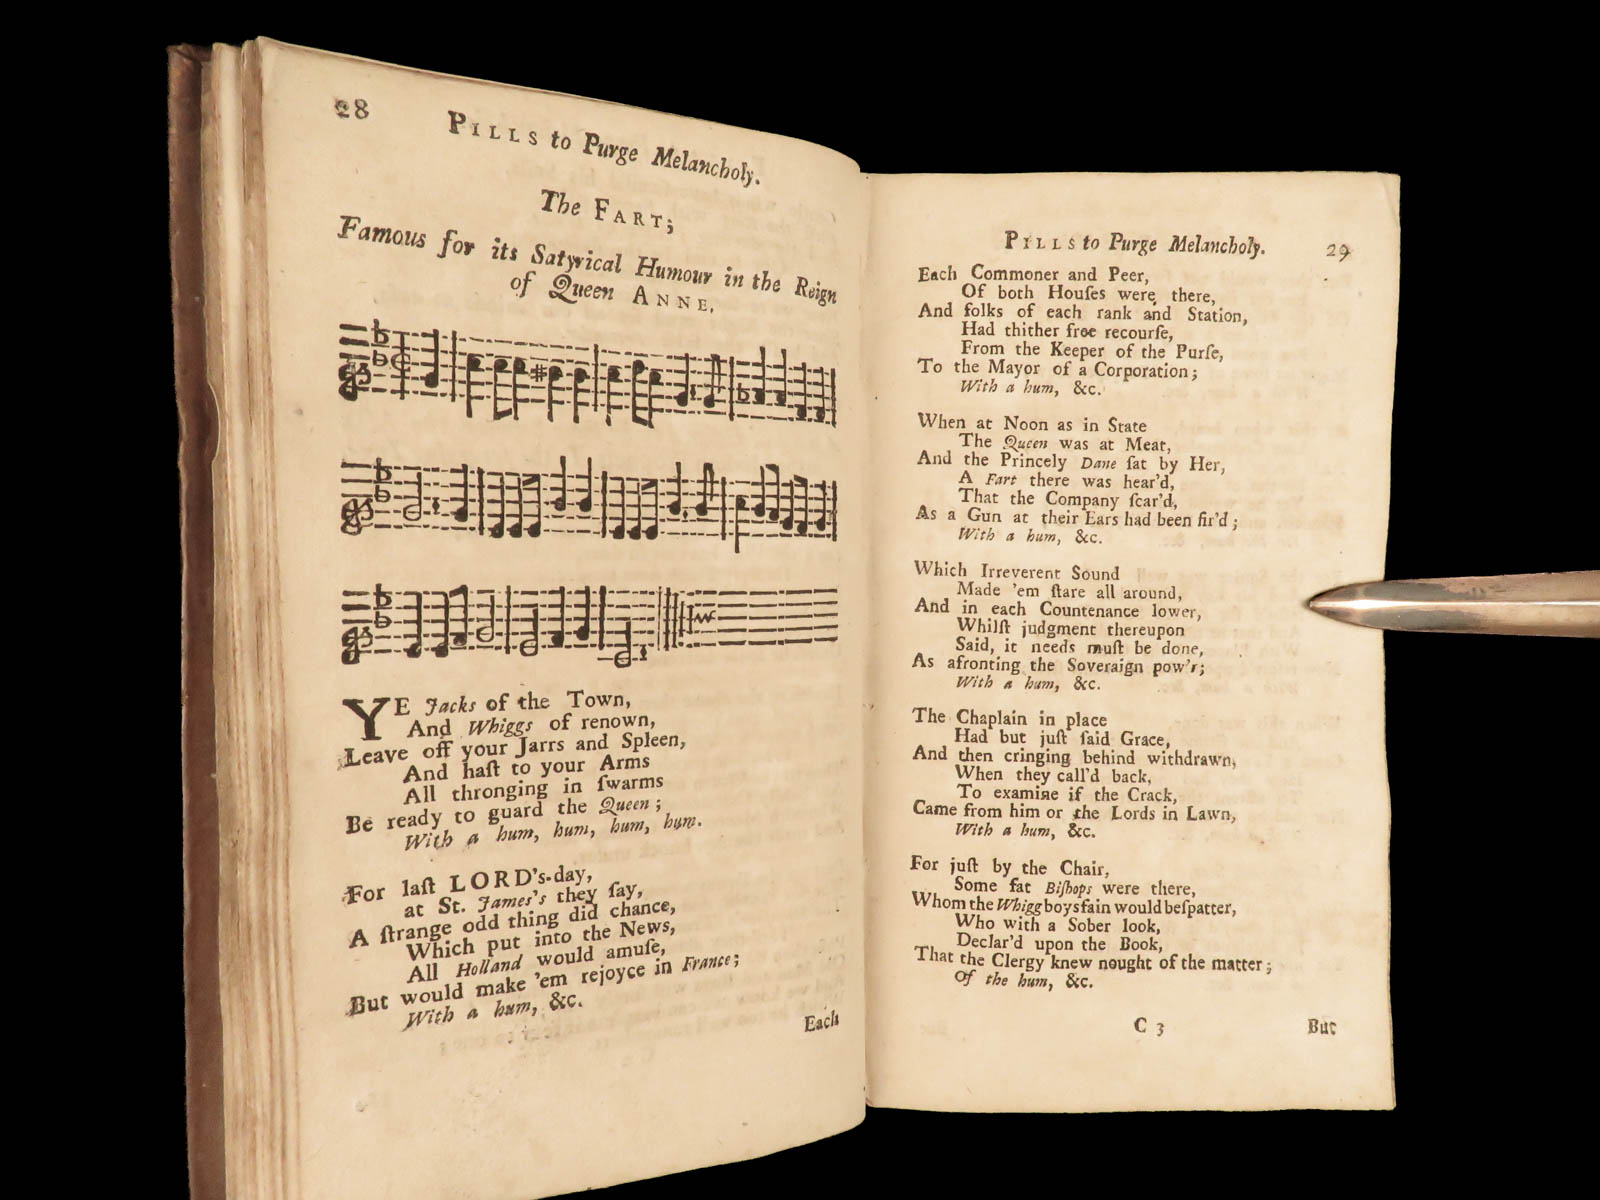 28
PILLS to Purge Melancholy.
The FART;
Famous for its Satyrical Humour in the Reign
of Queen ANNE,
YE Jacks of the Town,
And Whiggs of renown,
Leave off your Jarrs and Spleen,
And haſt to your Arms
All thronging in ſwarms
Be ready to guard the Queen;
With a hum, hum, hum, hum.
For laſt LORD's-day,
at St. James's they ſay,
A ſtrange odd thing did chance,
Which put into the News,
All Holland would amuſe,
But would make 'em rejoyce in France;
With a hum, &c.
Each
PILLS to Purge Melancholy. 29
Each Commoner and Peer,
Of both Houſes were there,
And folks of each rank and Station,
Had thither free recourſe,
From the Keeper of the Purſe,
To the Mayor of a Corporation;
With a hum, &c.
When at Noon as in State
The Queen was at Meat,
And the Princely Dane ſat by Her,
A Fart there was hear'd,
That the Company ſcar'd,
As a Gun at their Ears had been fir'd;
With a hum, &c.
Which Irreverent Sound
Made 'em ſtare all around,
And in each Countenance lower,
Whilſt judgment thereupon
Said, it needs muſt be done,
As afronting the Soveraign pow'r;
With a hum, &c.
The Chaplain in place
Had but juſt ſaid Grace,
And then cringing behind withdrawn,
When they call'd back,
To examine if the Crack,
Came from him or the Lords in Lawn,
With a hum, &c.
For juſt by the Chair,
Some fat Biſhops were there,
Whom the Whigg boys fain would beſpatter,
Who with a Sober look,
Declar'd upon the Book,
That the Clergy knew nought of the matter;
Of the hum, &c.
C 3 But